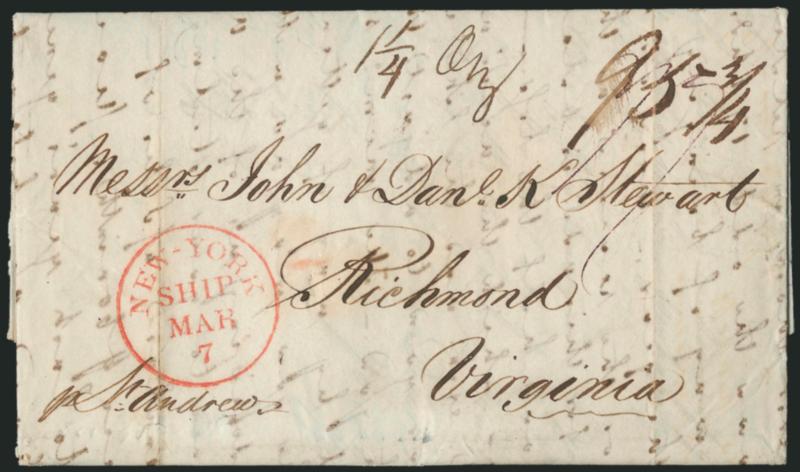 1 1/4 Oz
95 3/4
Messrs John & Danl. K. Stewart
Richmond
Virginia
NEW-YORK
SHIP
MAR
7
p St. Andrew